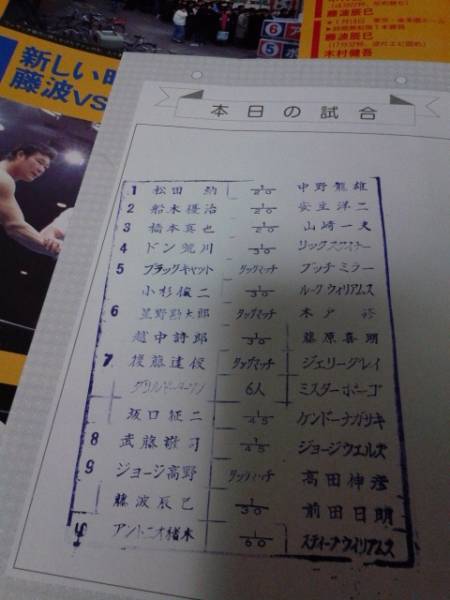 新しい
藤波VS
藤波辰巳
木村健吾
本日の試合
1 松田 納 1/20 中野龍雄
2 船木優治 1/20 安生洋二
3 橋本真也 1/20 山崎一夫
4 ドン荒川 1/30 リックスタイナー
5 ブラックキャット タッグマッチ ブッチミラー
小杉俊二 1/30 ルークウィリアムス
6 星野勘太郎 タッグマッチ 木戸 修
越中詩郎 1/30 藤原喜明
7 後藤達俊 タッグマッチ ジェリーグレイ
6人 ミスターポーゴ
坂口征二 1/45 ケンドーナガサキ
8 武藤敬司 1/45 ジョージウエルズ
9 ジョージ高野 タッグマッチ 高田伸彦
藤波辰巳 1/30 前田日明
アントニオ猪木 1/60 スティーブウィリアムス